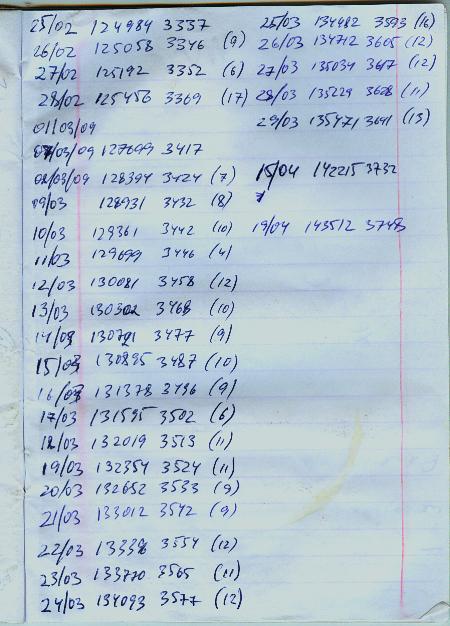 25/02 124984 3337
26/02 125058 3346 (9)
27/02 125192 3352 (6)
28/02 125456 3369 (17)
01/03/09
07/03/09 127699 3417
08/03/09 128394 3424 (7)
09/03 128931 3432 (8)
10/03 129361 3442 (10)
11/03 129699 3446 (4)
12/03 130081 3458 (12)
13/03 130302 3468 (10)
14/03 130721 3477 (9)
15/03 130895 3487 (10)
16/03 131378 3496 (9)
17/03 131595 3502 (6)
18/03 132019 3513 (11)
19/03 132354 3524 (11)
20/03 132652 3533 (9)
21/03 133012 3542 (9)
22/03 13338 3554 (12)
23/03 133770 3565 (11)
24/03 134093 3577 (12)
25/03 134482 3593 (16)
26/03 134712 3605 (12)
27/03 135034 3617 (12)
28/03 135229 3628 (11)
29/03 135471 3641 (13)
15/04 142215 3732
19/04 143512 3748